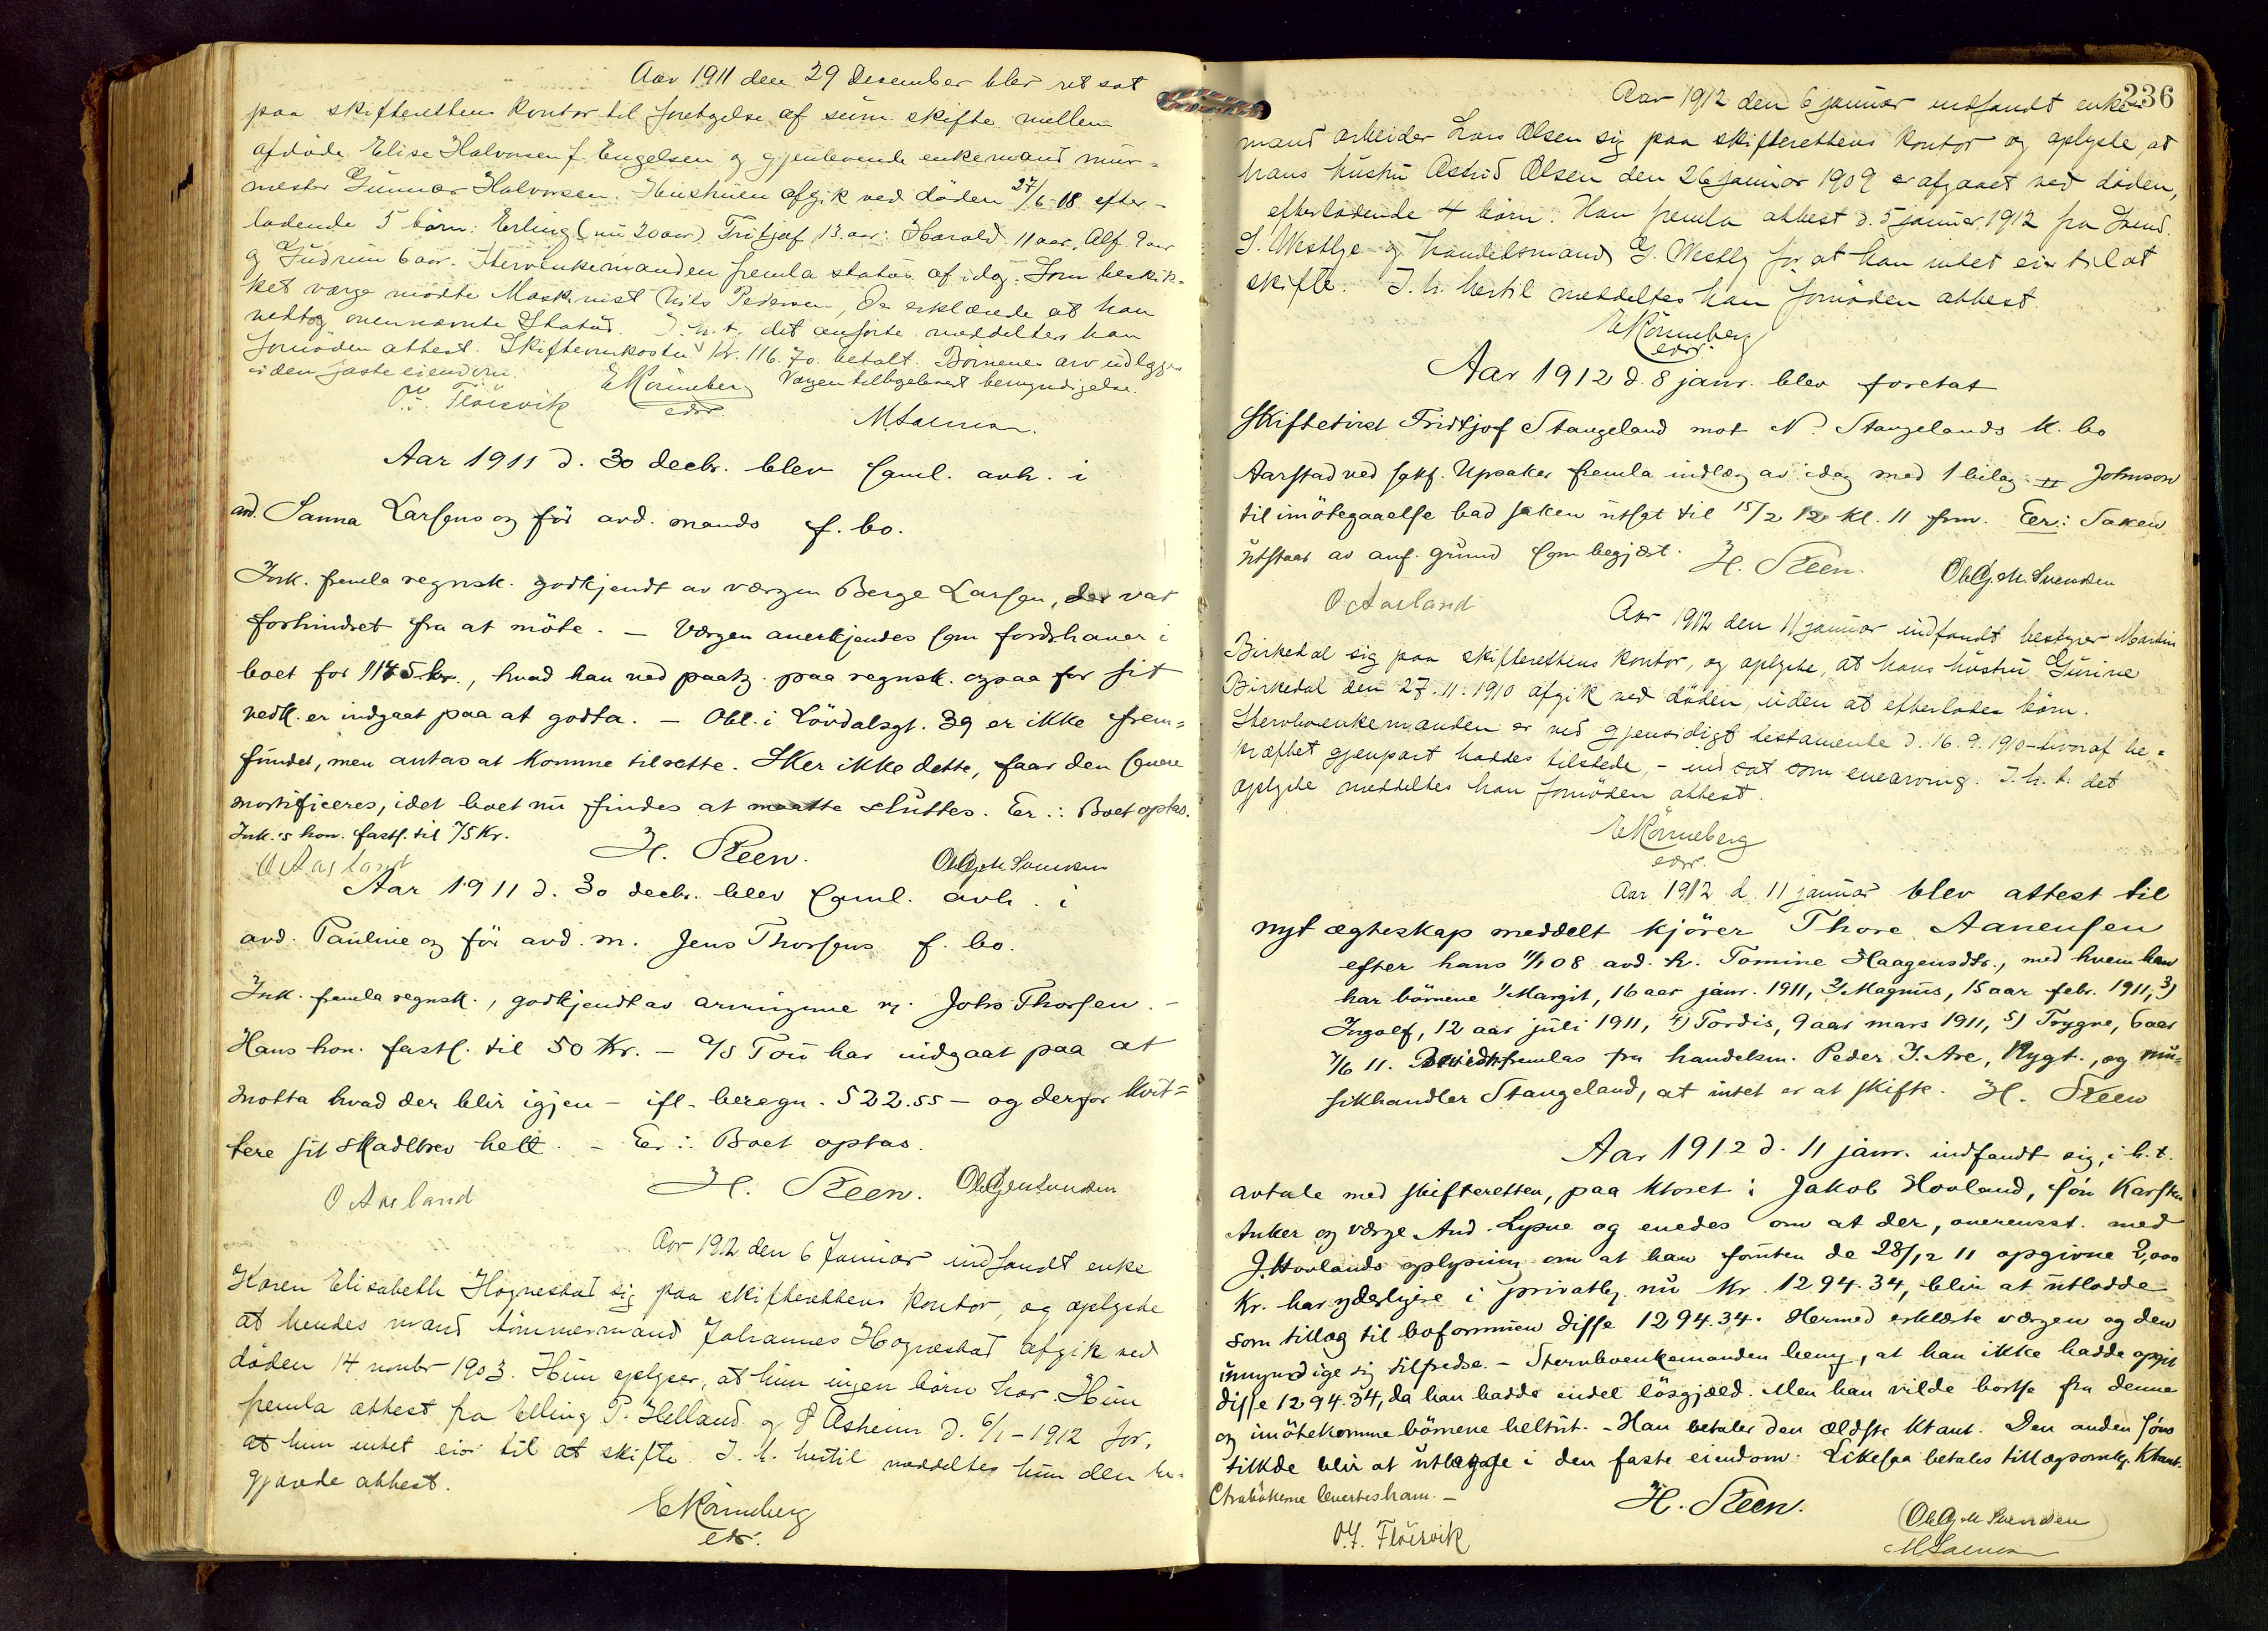 Aar 1911 den 29 Desember blev ret sat
paa skifterettens kontor til foretagelse af sum. skifte mellem
afdöde Elise Halvorsen f. Engelsen og gjenlevende enkemand mur-
mester Gunnar Halvorsen. Hustruen afgik ved döden 27/6 08 efter-
ladende 5 börn: Erling (nu 20 aar) Fritjof 13 aar: Harald 11 aar, Alf. 9 aar
og Gudrun 6 aar. Stervenkemanden fremla status af idag. Som beskik-
ket værge mödte Maskinist Nils Pedersen, Da erklærede at han
vedtog ovennævnte Status. I. h. t. det anförte meddeltes han
fornöden attest. Skifteomkostn. Kr. 116.70. betalt. Börnenes arv udlægges
i den faste eiendom. Værgen tilbageleveret bemyndigelse.
EKönneberg
edsv.
O. J. Flöisvik
M Salman.
Aar 1911 d. 30 decbr. blev saml. avh. i
avd. Sanna Larsens og för avd. mands f. bo.
Ink. fremla regnsk. godkjendt av værgen Berge Larsen, der var
forhindret fra at möte. – Værgen anerkjendes som fordrhaver i
boet for 1145 kr., hvad han ved paatg. paa regnsk. ogsaa for sit
vedk. er indgaat paa at godta. – Obl. i Lövdalsgt. 39 er ikke frem=
fundet, men antas at komme tilrette. Sker ikke dette, faar den senere
mortificeres, idet boet nu findes at maatte sluttes. Er.: Boet optas.
Ink.'s hon. fasts. til 75 Kr.
H. Steen.
O Aarland
Aar 1911 d. 30 decbr. blev saml. avh. i
avd. Pauline og för avd. m. Jens Thorsens f. bo.
Ink. fremla regnsk., godkjendt av arvingerne v. Johs Thorsen. –
Hans hon. fasts. til 50 Kr. – A/S Tou har indgaat paa at
motta hvad der blir igjen – ifl. beregn. 522.55 – og derfor kvit=
tere sit skadlbrev helt. – Er.: Boet optas.
H. Steen.
O Aarland
Aar 1912 den 6 Januar indfandt enke
Karen Elisabeth Hognestad sig paa skifterettens kontor, og oplyste
at hendes mand tömmermand Johannes Hognestad afgik ved
döden 14 novbr 1903. Hun oplyser, at hun ingen börn har. Hun
fremla attest fra Elling P. Helland og Asheim d. 6/1-1912 for,
at hun intet eier til at skifte. I. h. hertil meddeltes hun den be-
gjærede attest.
EKönneberg
eds.
236
Aar 1912 den 6 januar indfandt enke-
mand arbeider Lars Olsen sig paa skifterettens kontor og oplyste, at
hans hustru Astrid Olsen den 26 januar 1909 er afgaaet ved döden,
efterladende 4 börn. Han fremla attest d. 5 januar 1912 fra
S. Westlye og handelsmand G. Westly for at han intet eier til at
skifte. I. h. hertil meddeltes han fornöden attest.
EKönneberg
edsv.
Aar 1912 d. 8 janr. blev foretat
skiftetvist Fridtjof Stangeland mot N. Stangelands k. bo
Aarstad ved sakf. Upsaker fremla indlæg av idag med 1 bilag. Johnson
til imötegaaelse bad saken utsat til 15/2 12 kl. 11 frm. Eer: Saken
utstaar av anf. grund som begjært.
H. Steen.
O Aarland
Aar 1912 den 11 januar indfandt bestyrer Martin
Birkedal sig paa skifterettens kontor, og oplyste, at hans hustru Gurine
Birkedal den 27.11.1910 afgik ved döden, uden at efterlade börn.
Stervboenkemanden er ved gjensidigt testamente d. 16.9.1910 – hvoraf be=
kræftet gjenpart haddes tilstede, – indsat som enearving. I. h. t. det
oplyste meddeltes han fornöden attest.
EKönneberg
edsv.
Aar 1912 d. 11 januar blev attest til
nyt ægteskap meddelt kjörer Thore Aanensen
efter hans 11/1 08 avd. h. Tomine Haagensdtr., med hvem han
har börnene 1/ Margit, 16 aar janr. 1911, 2/ Magnus, 15 aar febr. 1911, 3)
Ingolf, 12 aar juli 1911, 4) Tordis, 9 aar mars 1911, 5) Trygve, 6 aar
7/6 11. fremlas fra handelsm. Peder J. Are, Nygt., og mu=
sikhandler Stangeland, at intet er at skifte. H. Steen
Aar 1912 d. 11 janr. indfandt sig, i h. t.
avtale med skifteretten, paa ktoret: Jakob Hovland, sön Karsten
Anker og værge And. Lysne og enedes om at der, overensst. med
J. Hovlands oplysning om at han foruten de 28/12 11 opgivne 2,000
Kr. har yderligere i privatbg. nu Kr. 1294.34, blir at utlodde
som tillæg til boformuen disse 1294.34. Hermed erklærte værgen og den
umyndige sig tilfredse. – Stervboenkemanden bem, at han ikke hadde opgit
disse 1294.34, da han hadde endel lösgjæld. Men han vilde bortse fra denne
og imötekomme börnene heltut. – Han betaler den ældste ktant. Den anden söns
tilkde blir at utlægge i den faste eiendom. Likesaa betales tillægsomkg. Ktant.
H. Steen.
O. J. Flöisvik
M Salman